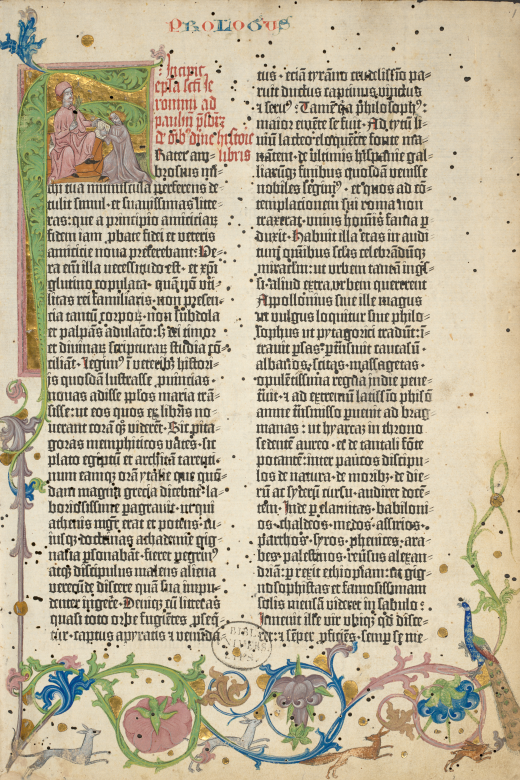 PROLOGUS
Incipit
epla scti Je
ronimi ad
paulinū pſbitʒ
de oībʒ diuīe hiſtorie
libris
Frater am
broſius tuā
michi munuſcula preferens de
tulit ſimul · et ſuauiſſimas litte
ras: que a principio amiciciaꝝ
fidem iam ꝓbate fidei et veteris
amicicie noua preferebant: Ve
ra em̄ illa neceſſitudo eſt · et xp̄i
glutino copulata · quā nō vti
litas rei familiaris · non preſen
cia tantū corporis · non ſubdola
et palpās adulatō: ſʒ dei timor
et diuinaꝝ ſcripturaꝝ ſtudia cō⸗
ciliāt · Legim⁹ ī veteribʒ hiſtori⸗
is quoſdā luſtraſſe ꝓuincias ·
nouas adiſſe pplos maria trā⸗
ſiſſe: ut eos quos ex libris no⸗
uerant corā qꝫ viderēt · Sic pita
goras memphiticos vates · ſic
plato egiptū et architā tarenti
num eamqꝫ orā ytalie que quō⸗
dam magna grecia dicebat: la
borioſiſſime pagrauit · ut qui
athenis mgr̄ erat et potens · cu⸗
iuſqꝫ doctrinas achademie gig⸗
naſia pſonabāt · fieret pegrin⁹
atqꝫ diſcipulus malens aliena
verecūde diſcere quā ſua impu⸗
denter ingerere · Deniqꝫ cū litteras
quaſi toto orbe fugiētes pſeq̄
tur · captus a pyratis et venūda
tus · eciā tyrāno crudeliſſio pa⸗
ruit ductus captiuus vinctus
et ſeru⁹: Tamē qꝫ philoſoph⁹:
maior emēte ſe fuit · Ad tytū li⸗
uiū lacteo eloquēcie fonte ma⸗
nātem · de vltimis hiſpanie gal
liarūqꝫ finibus quoſdā veniſſe
nobiles legim⁹ · et quos ad cō⸗
templacionem ſui roma non
traxerat · vnius homīs fama ꝑ
duxit · Habuit illa etas in audi
tum oīnibus ſeclis celebrādūqꝫ
miraclm: ut vrbem tantā ingreſ⸗
ſi · aliud extra vrbem quererent
Appollonius ſiue ille magus
ut vulgus loquitur ſiue philo⸗
ſophus ut pytagorici tradūt: ī⸗
trauit pſas · ptrāſiuit caucaſū ·
albanos · ſcitas · maſſagetas ·
opulētiſſima regna indie pene⸗
trauit · et ad extremū latiſſimo phiſon
amne trāſmiſſo puenit ad brag⸗
manas: ut hyarcā in throno
ſedentē aureo · et de tantali fōte
potantē: inter paucos diſcipu
los de natura · de moribʒ · de die⸗
rū ac ſyderū curſu · audiret docē⸗
tem · Inde ꝑ elamitas · babiloni
os · chaldeos · medos · aſſirios ·
parthos · ſyros · phenices · ara⸗
bes · paleſtinos · reuſus alexan⸗
driā: ꝑrexit ethiopiam: ut gig⸗
noſophiſtas et famoſiſſimam
ſolis menſā videret in ſabulo:
Inuenit ille vir vbiqꝫ qd̄ diſce⸗
ret: et ſēper ꝓficiēs · ſemp ſe me